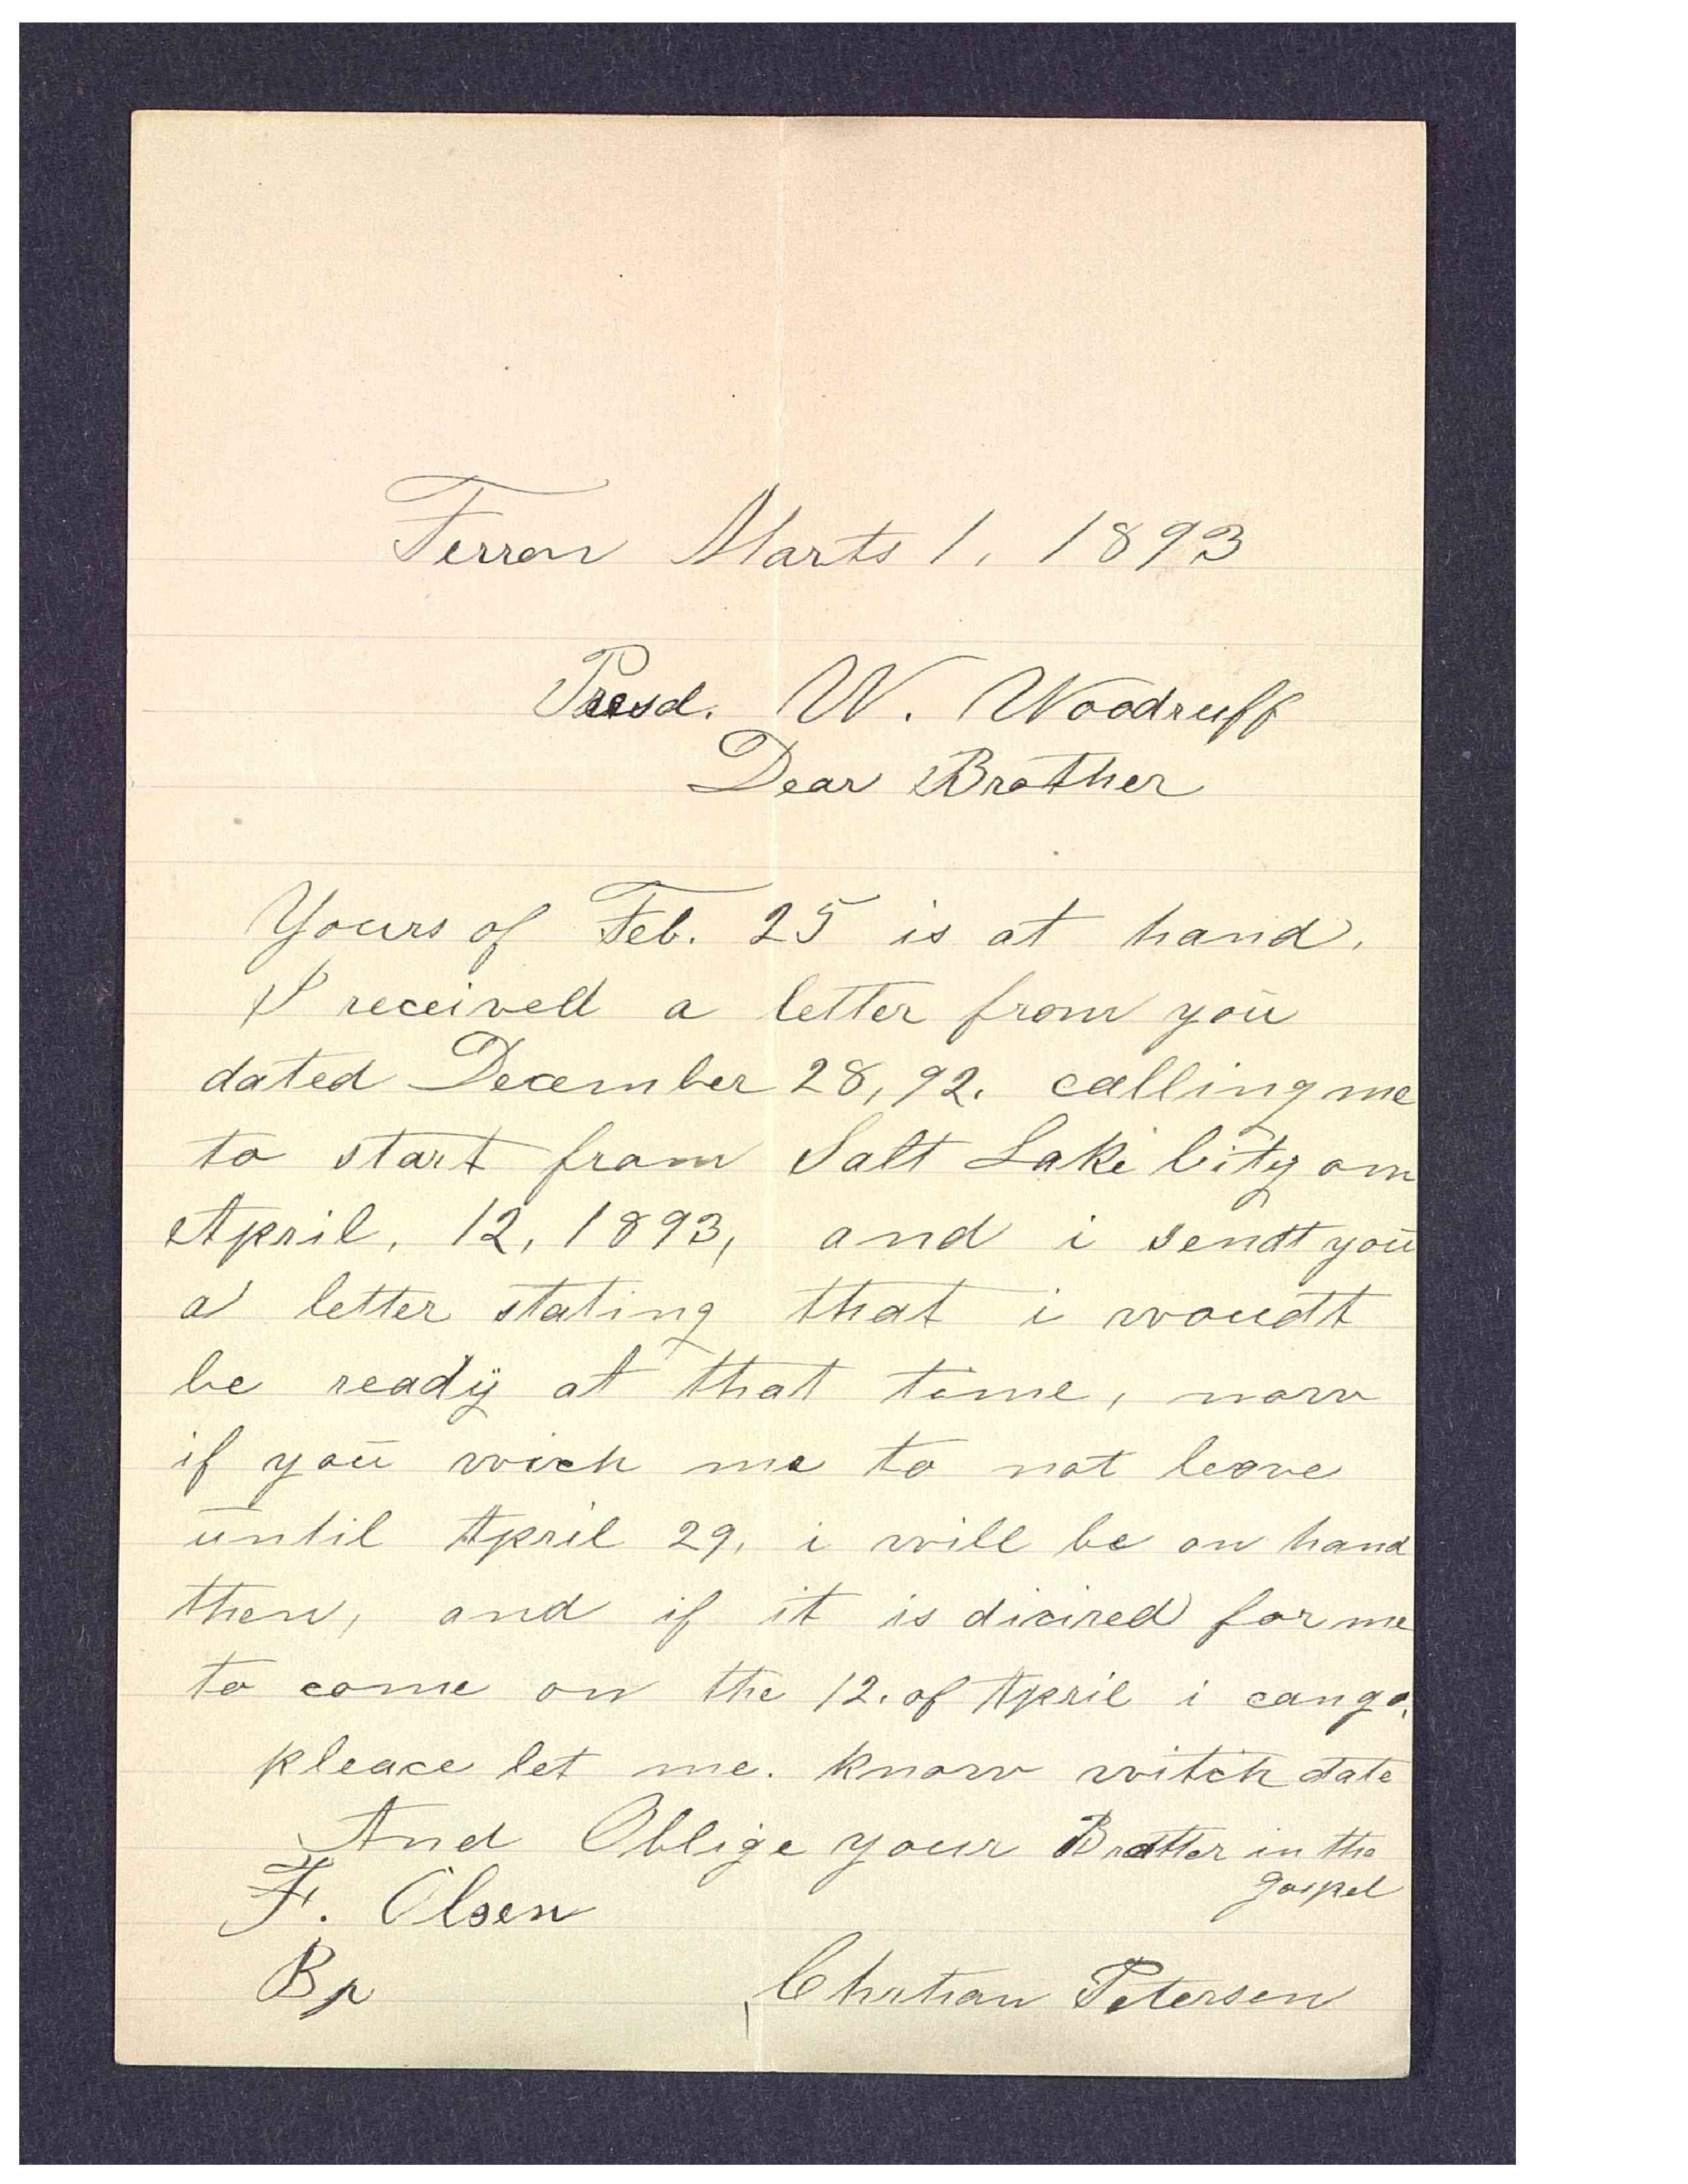 Ferron Marts 1, 1893
Presd. W. Woodruff
Dear Brother
Yours of Feb. 25 is at hand.
I receivell a letter from you
dated December 28, 92. calling me
to start from Salt Lake City om
April, 12, 1893, and i sendt you
a letter stating that i woudt
be ready at that time, now
if you wich me to not leave
until April 29, i will be on hand
then, and if it is dicired for me
to come on the 12. of April i can go,
pleace let me. know witch date
And Oblige your Brotter in the
gospel
F. Olsen
Bp
Christian Petersen